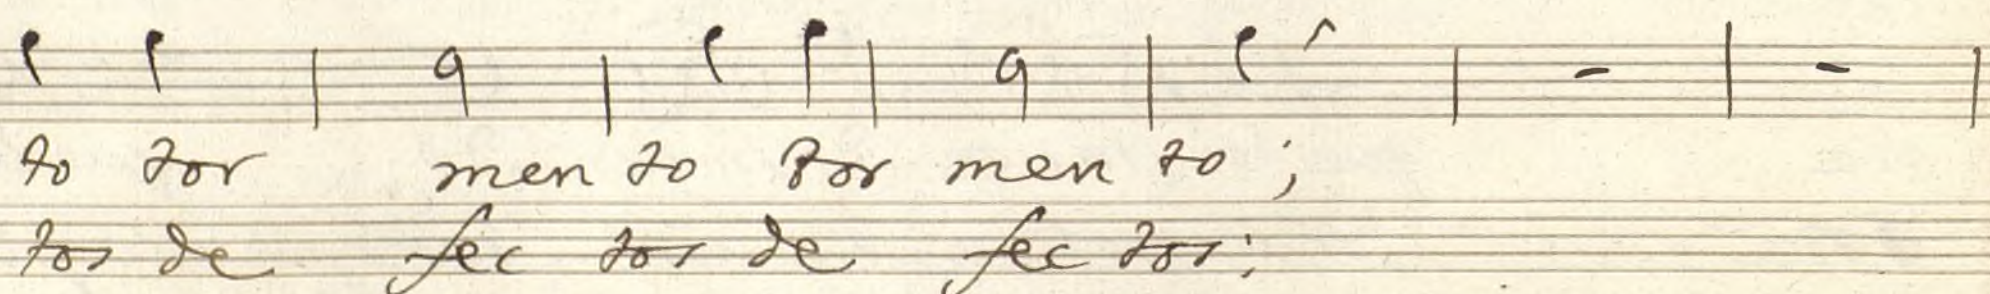 to tor men to tor men to;
tos de fec tos de fec tos: